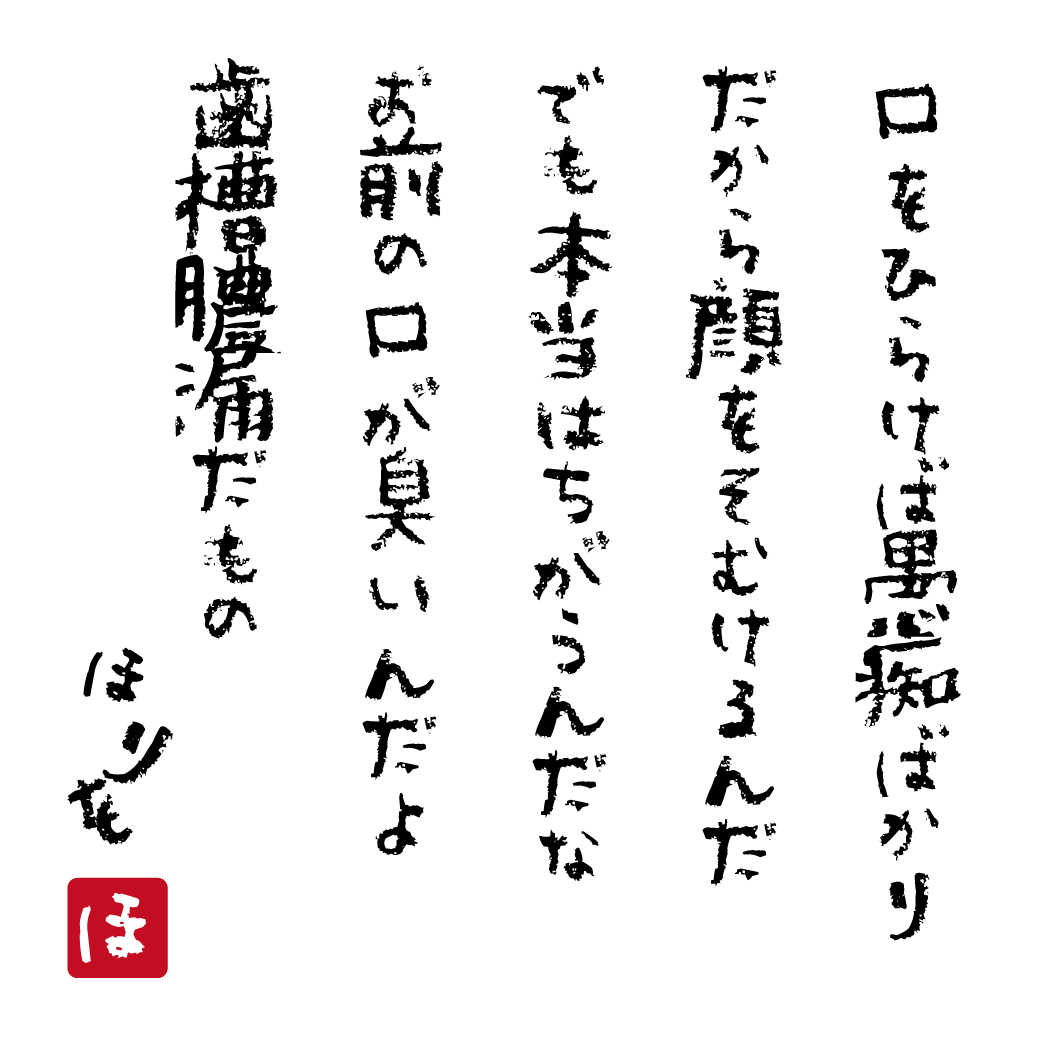 口をひらけば愚痴ばかり
だから顔をそむけるんだ
でも本当はちがうんだな
お前の口が臭いんだよ
歯槽膿漏だもの
ほりを
ほ